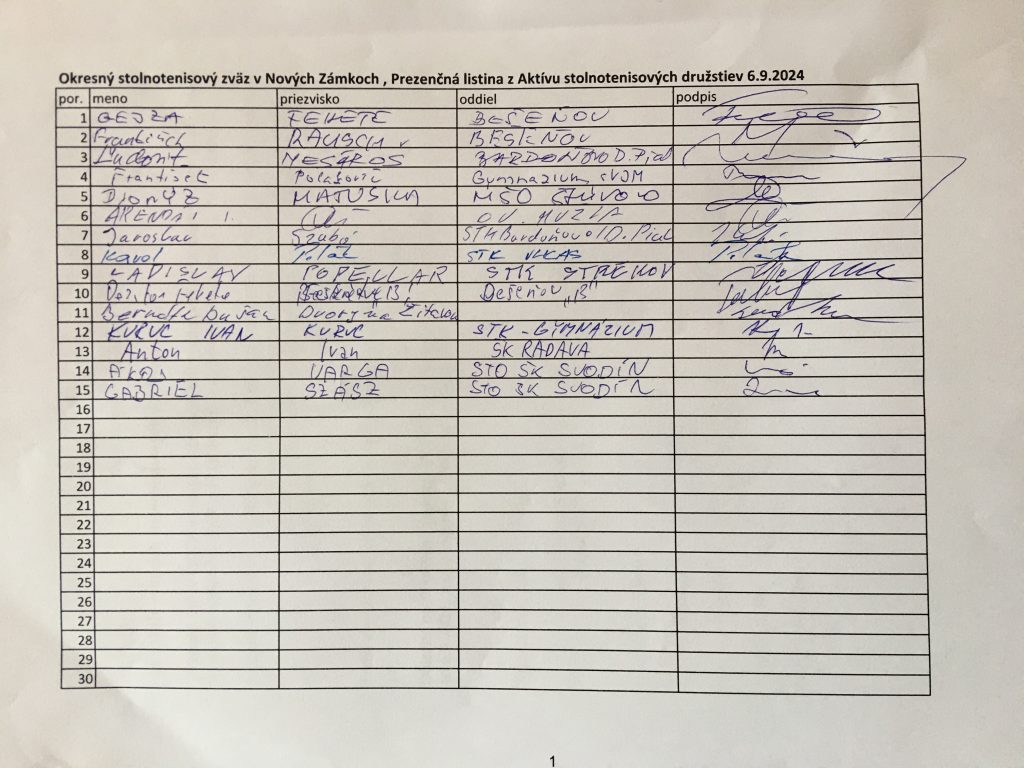 Okresný stolnotenisový zväz v Nových Zámkoch , Prezenčná listina z Aktívu stolnotenisových družstiev 6.9.2024
por. meno priezvisko oddiel podpis
1 GEJZA FEKETE BEŠEŇOV
2 František RAUSCH BEŠEŇOV
3 Ľudovít MESÁROS BARDOŇOVO D. Pial
4 František Polašovič Gymnazium CVDM
5 Dionýz MATUŠKA MŠO ŠTÚROVO
6 OÚ. MUZLA
7 Jaroslav Szabó STK Bardoňovo/D. Pial
8 Karol Polák STK VLKAS
9 LADISLAV POPELLAR STK STREKOV
10 Fekete Bešeňov "B"
11 Dušan Dvory na Žitavou
12 KURUC IVAN KURUC STK - GYMNÁZIUM
13 Anton Ivan ŠK RADAVA
14 ÁKOS VARGA STO ŠK SVODÍN
15 GABRIEL SZÁSZ STO ŠK SVODÍN
16
17
18
19
20
21
22
23
24
25
26
27
28
29
30
1